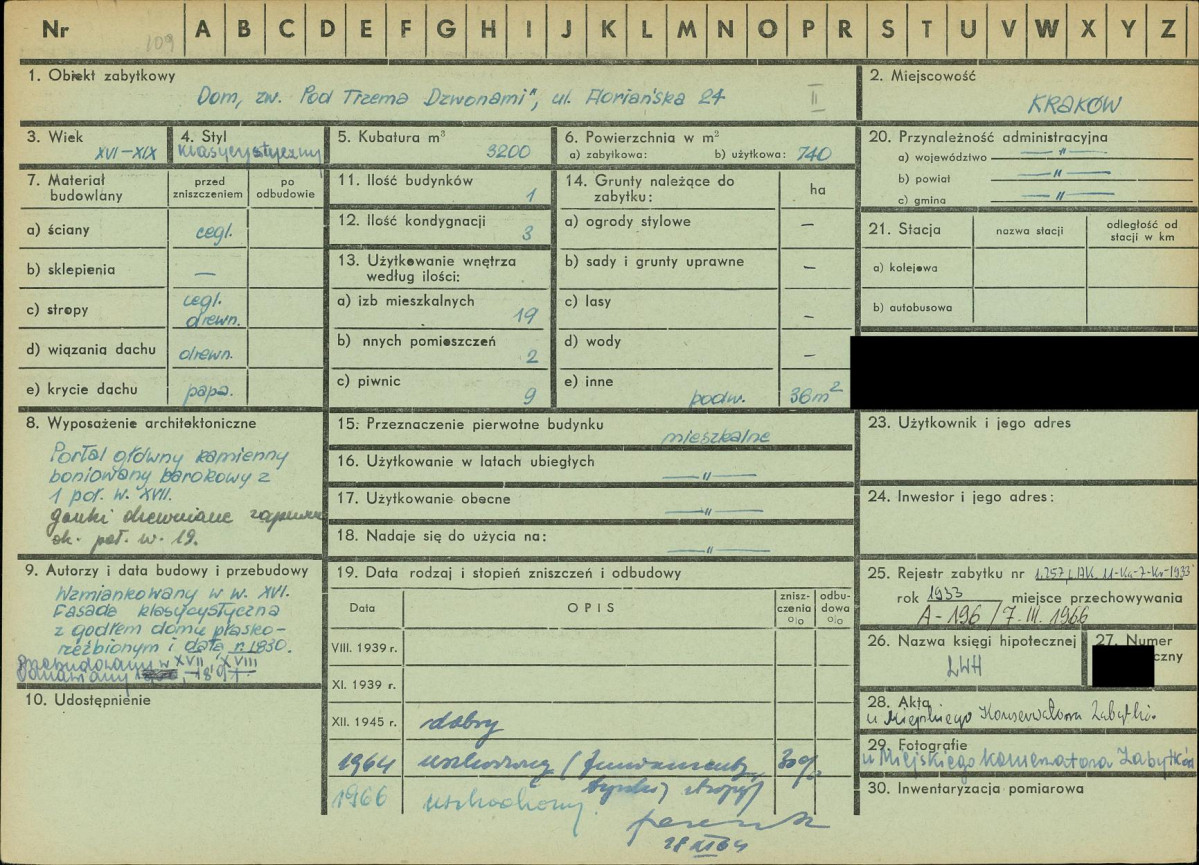 Nr 109 A B C D E F G H I J K L M N O P R S T U V W X Y Z
1. Obiekt zabytkowy
Dom, zw. Pod Trzema Dzwonami", ul. Floriańska 24 II
2. Miejscowość
KRAKÓW
3. Wiek
XVI-XIX
4. Styl
klasycystyczny
5. Kubatura m³
3200
6. Powierzchnia w m²
a) zabytkowa: b) użytkowa: 740
20. Przynależność administracyjna
a) województwo —"—
b) powiat —"—
c) gmina —"—
7. Materiał budowlany
przed zniszczeniem
po odbudowie
a) ściany cegl.
b) sklepienia —
c) stropy cegl. drewn.
d) wiązania dachu drewn.
e) krycie dachu papa.
11. Ilość budynków
1
12. Ilość kondygnacji
3
13. Użytkowanie wnętrza
według ilości:
a) izb mieszkalnych
19
b) nnych pomieszczeń
2
c) piwnic
9
14. Grunty należące do
zabytku:
ha
a) ogrody stylowe —
b) sady i grunty uprawne —
c) lasy —
d) wody —
e) inne podw. 36m²
21. Stacja
nazwa stacji
odległość od
stacji w km
a) kolejowa
b) autobusowa
8. Wyposażenie architektoniczne
Portal główny kamienny
boniowany barokowy z
1 poł. w. XVII.
ganki drewniane
ok. poł. w. 19.
15. Przeznaczenie pierwotne budynku
mieszkalne
16. Użytkowanie w latach ubiegłych
—"—
17. Użytkowanie obecne
—"—
18. Nadaje się do użycia na:
—"—
23. Użytkownik i jego adres
24. Inwestor i jego adres:
9. Autorzy i data budowy i przebudowy
Wzmiankowany w w. XVI.
Fasada klasycystyczna
z godłem domu płasko-
rzeźbionym i datą r. 1830.
przebudowany w XVII, XVIII
10. Udostępnienie
19. Data rodzaj i stopień zniszczeń i odbudowy
Data
OPIS
znisz-
czenia
%
odbu-
dowa
%
VIII. 1939 r.
XI. 1939 r.
XII. 1945 r. dobry
1964 uszkodzony (fundamenty, 30%
tynki, stropy)
1966 uszkodzony.
28 XI 64
25. Rejestr zabytku nr L.257, L.AK. 11-Ka-7-Kr-1933
rok 1933 miejsce przechowywania
A-196 / 7. III. 1966
26. Nazwa księgi hipotecznej
LWH
27. Numer
czny
28. Akta
u Miejskiego Konserwatora Zabytków.
29. Fotografie
u Miejskiego konserwatora Zabytków
30. Inwentaryzacja pomiarowa